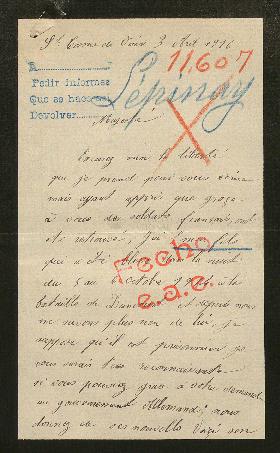 St Cosme de Vair 3 Avril 1916
11.607
A
Pedir informes
Que se hace
Devolver
Lépinay
Majesté
Excusez moi la liberté
que je prend pour vous écrire
mais ayant appris que grâce
à vous des soldats français ont
été retrouvés, j'ai mon fils
qui a été blessé dans la nuit
du 5 au 6 octobre 1914 à la
bataille de et depuis nous
ne savons plus rien de lui, je
suppose qu'il est prisonnier je
vous serais très reconnaissante
si vous pouviez grâce à votre demande
au gouvernement Allemand, nous
donner de ses nouvelles Voici son
Fecho
e.a.c.